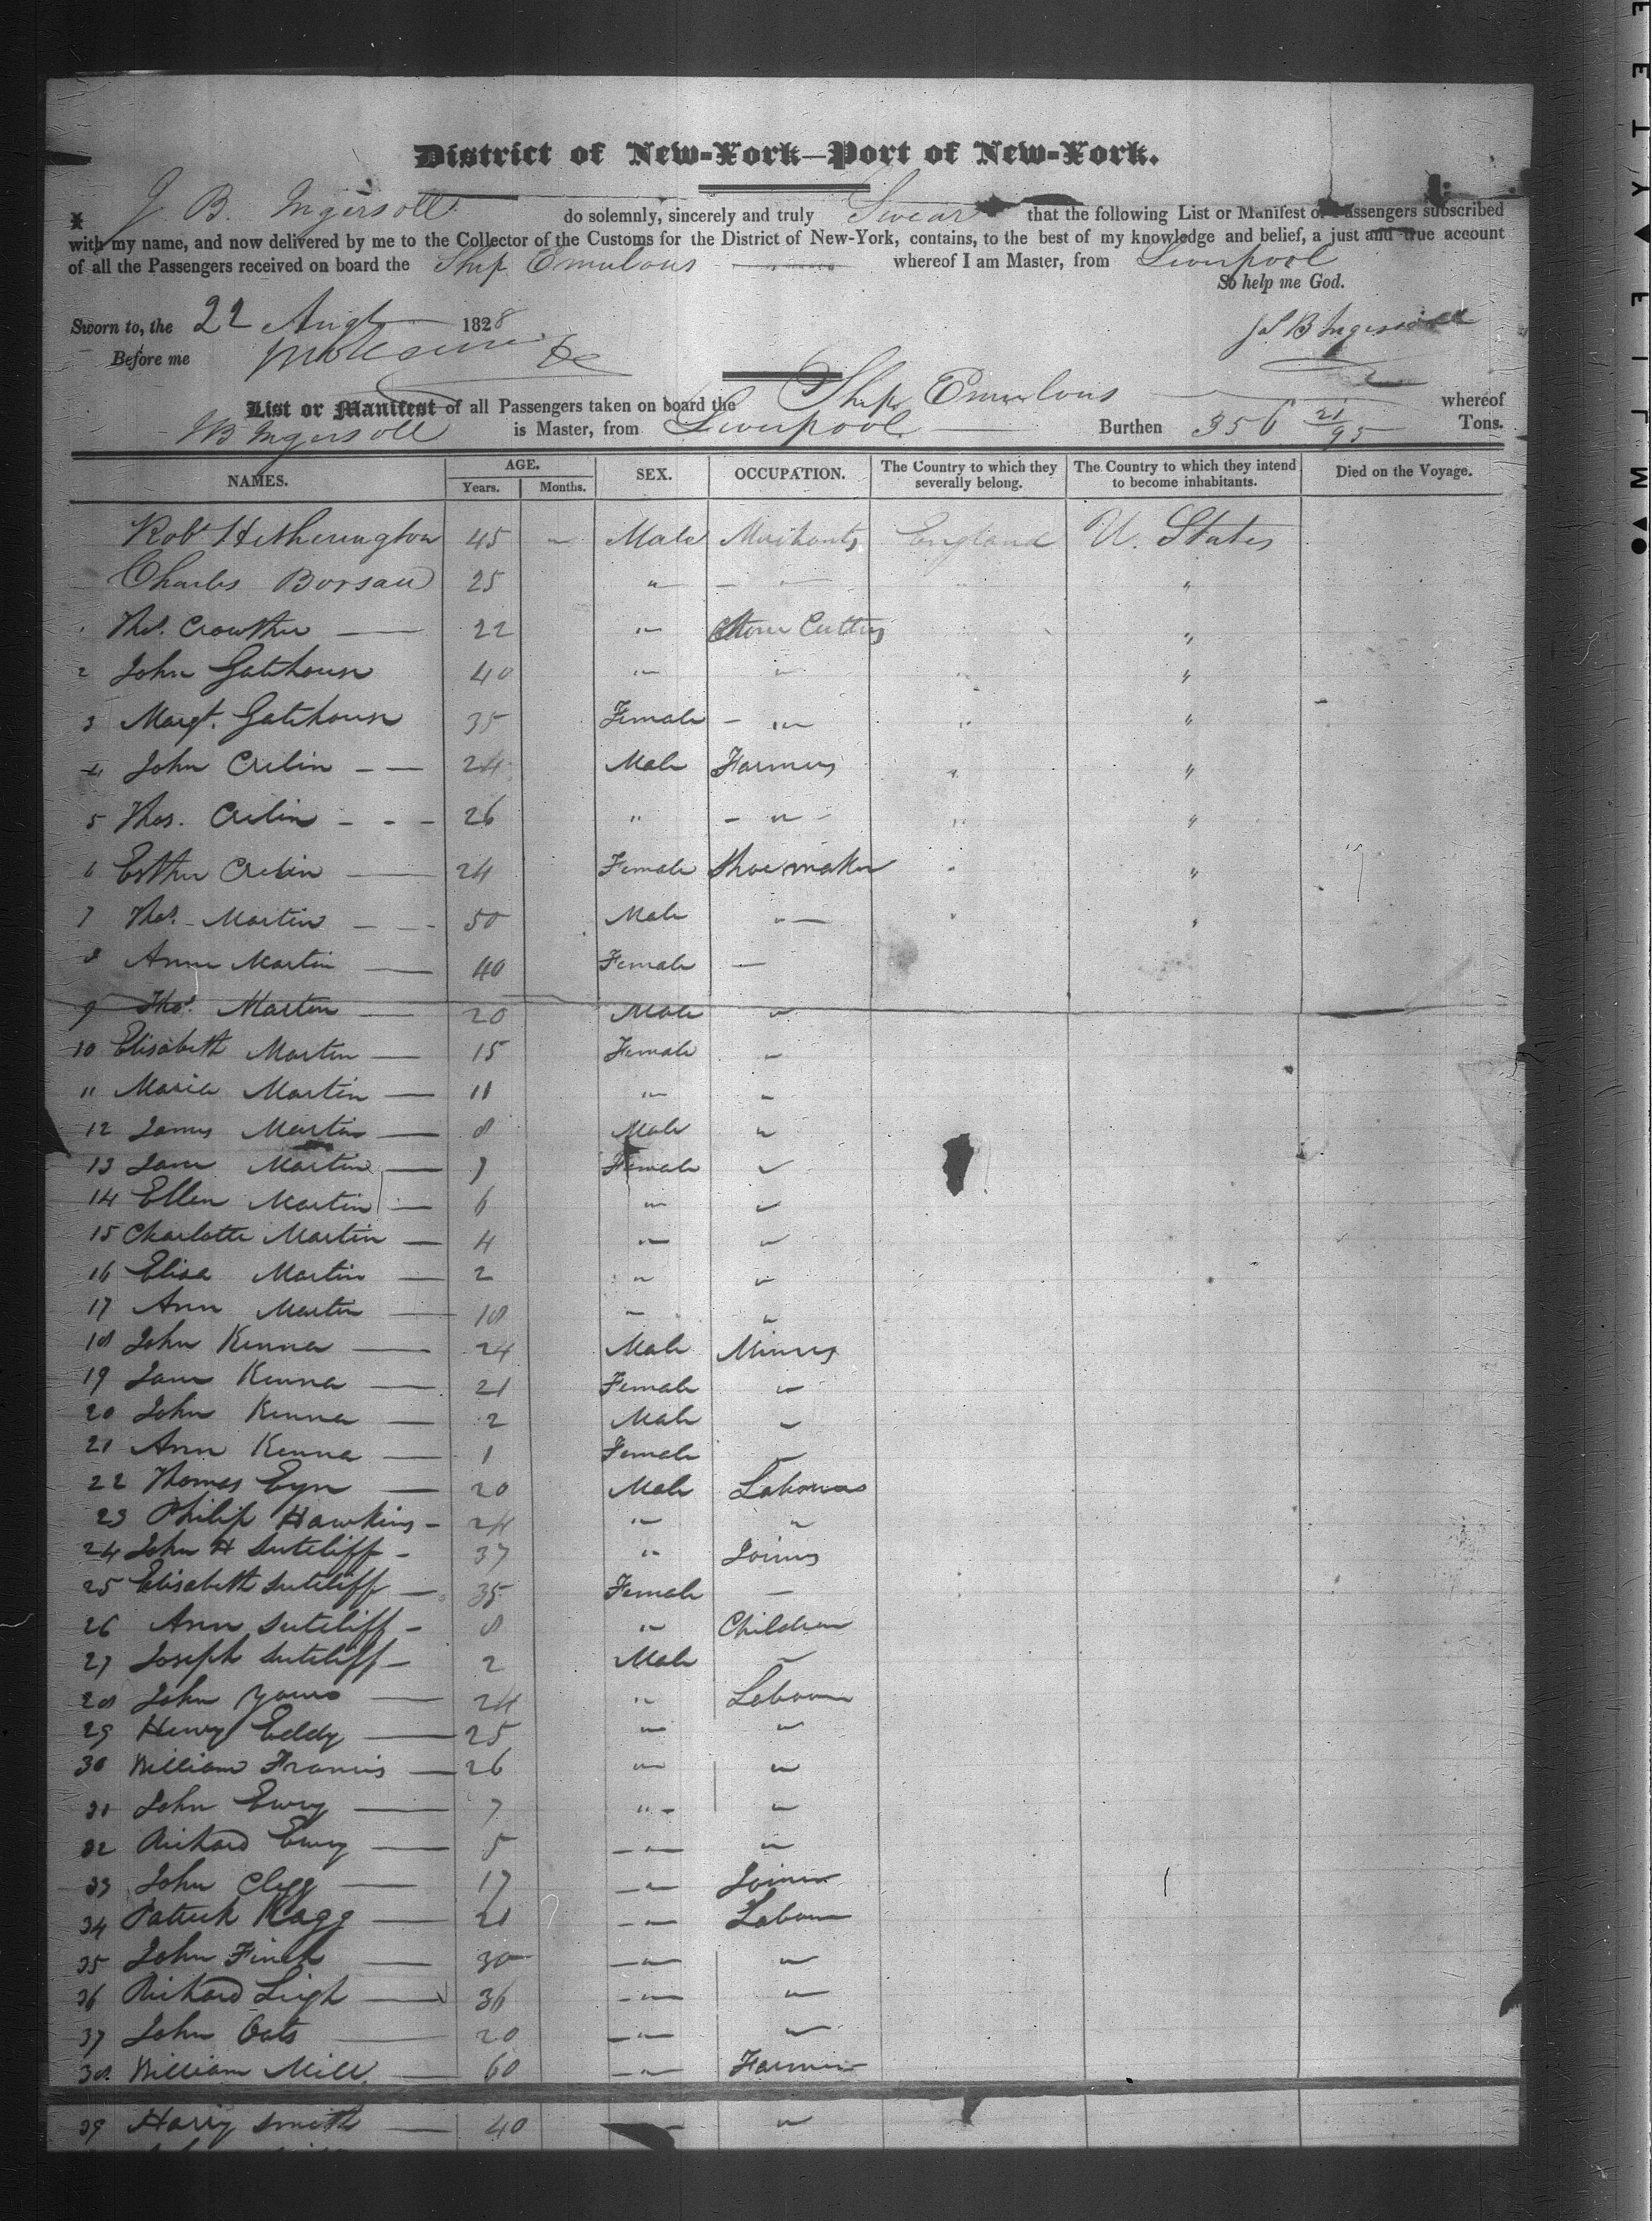 District of New-York—Port of New-York.
J. B. Ingersoll do solemnly, sincerely and truly Swear that the following List or Manifest of Passengers subscribed
with my name, and now delivered by me to the Collector of the Customs for the District of New-York, contains, to the best of my knowledge and belief, a just and true account
of all the Passengers received on board the Ship Emulous whereof I am Master, from Liverpool
So help me God.
Sworn to, the 22 Augt 1828
J. B Ingersoll
Before me
List or Manifest of all Passengers taken on board the Ship Emulous whereof
J B Ingersoll is Master, from Liverpool Burthen 356 21/95 Tons.
NAMES. AGE. Years. Months. SEX. OCCUPATION. The Country to which they severally belong. The Country to which they intend to become inhabitants. Died on the Voyage.
Robt Hetherington 45 " Male Merchants England U. States
Charles 25 " " "
1 Thos. Crowther 22 " Stone Cutters "
2 John Gatehouse 40 " " "
3 Margt. Gatehouse 35 Female " " "
4 John Crelin 24 Male Farmers " "
5 Thos. Crelin 26 " " " "
6 Esther Crelin 24 Female Shoemaker " "
7 Thos. Martin 50 Male " " "
8 Anne Martin 40 Female —
9 Thos. Martin 20 Male "
10 Elisabeth Martin 15 Female "
11 Maria Martin 11 " "
12 James Martin 8 Male "
13 Jane Martin 7 Female "
14 Ellen Martin 6 " "
15 Charlotte Martin 4 " "
16 Elisa Martin 2 " "
17 Ann Martin 18 " "
18 John Kenna 24 Male Miners
19 Jane Kenna 21 Female "
20 John Kenna 2 Male "
21 Ann Kenna 1 Female "
22 Thomas 20 Male Labourers
23 Philip Hawkins 24 " "
24 John H Sutcliff 37 " Joiners
25 Elisabeth Sutcliff 35 Female —
26 Ann Sutcliff 8 " Children
27 Joseph Sutcliff 2 Male "
28 John 24 " Labourer
29 Henry Eddy 25 " "
30 William Francis 26 " "
31 John Ewry 7 " "
32 Richard Ewry 5 " "
33 John Clegg 17 " Joiner
34 Patrick Kagg 21 " Labour
35 John Finch 30 " "
36 Richard Leigh 36 " "
37 John Oats 20 " "
38 William Mill 60 " Farmer
39 Harry Smith 40 "